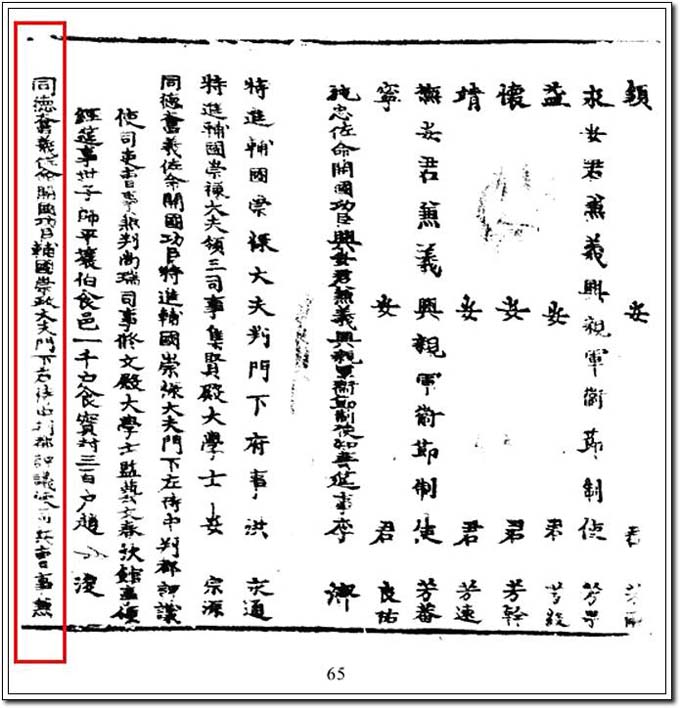 安 君 芳雨
永安君兼義興親軍衛節制使 芳果
益 安 君 芳毅
懷 安 君 芳幹
靖 安 君 芳遠
撫安君兼義興親軍衛節制使 芳蕃
寧 安 君 良祐
忠佐命開國功臣興安君兼義興親軍衛節制使知書筵事李 濟
特進輔國崇祿大夫判門下府事洪 永通
特進輔國崇祿大夫領三司事集賢殿大學士安 宗源
同德奮義佐命開國功臣特進輔國崇祿大夫門下左侍中判都評議
使司吏曹事兼判尙瑞司事修文殿大學士監藝文春秋館事領
經筵事世子師平壤伯食邑一千戶食實封三百戶趙 浚
同德奮義佐命開國功臣輔國崇政大夫門下右侍中判都評議使司兵曹事兼
65